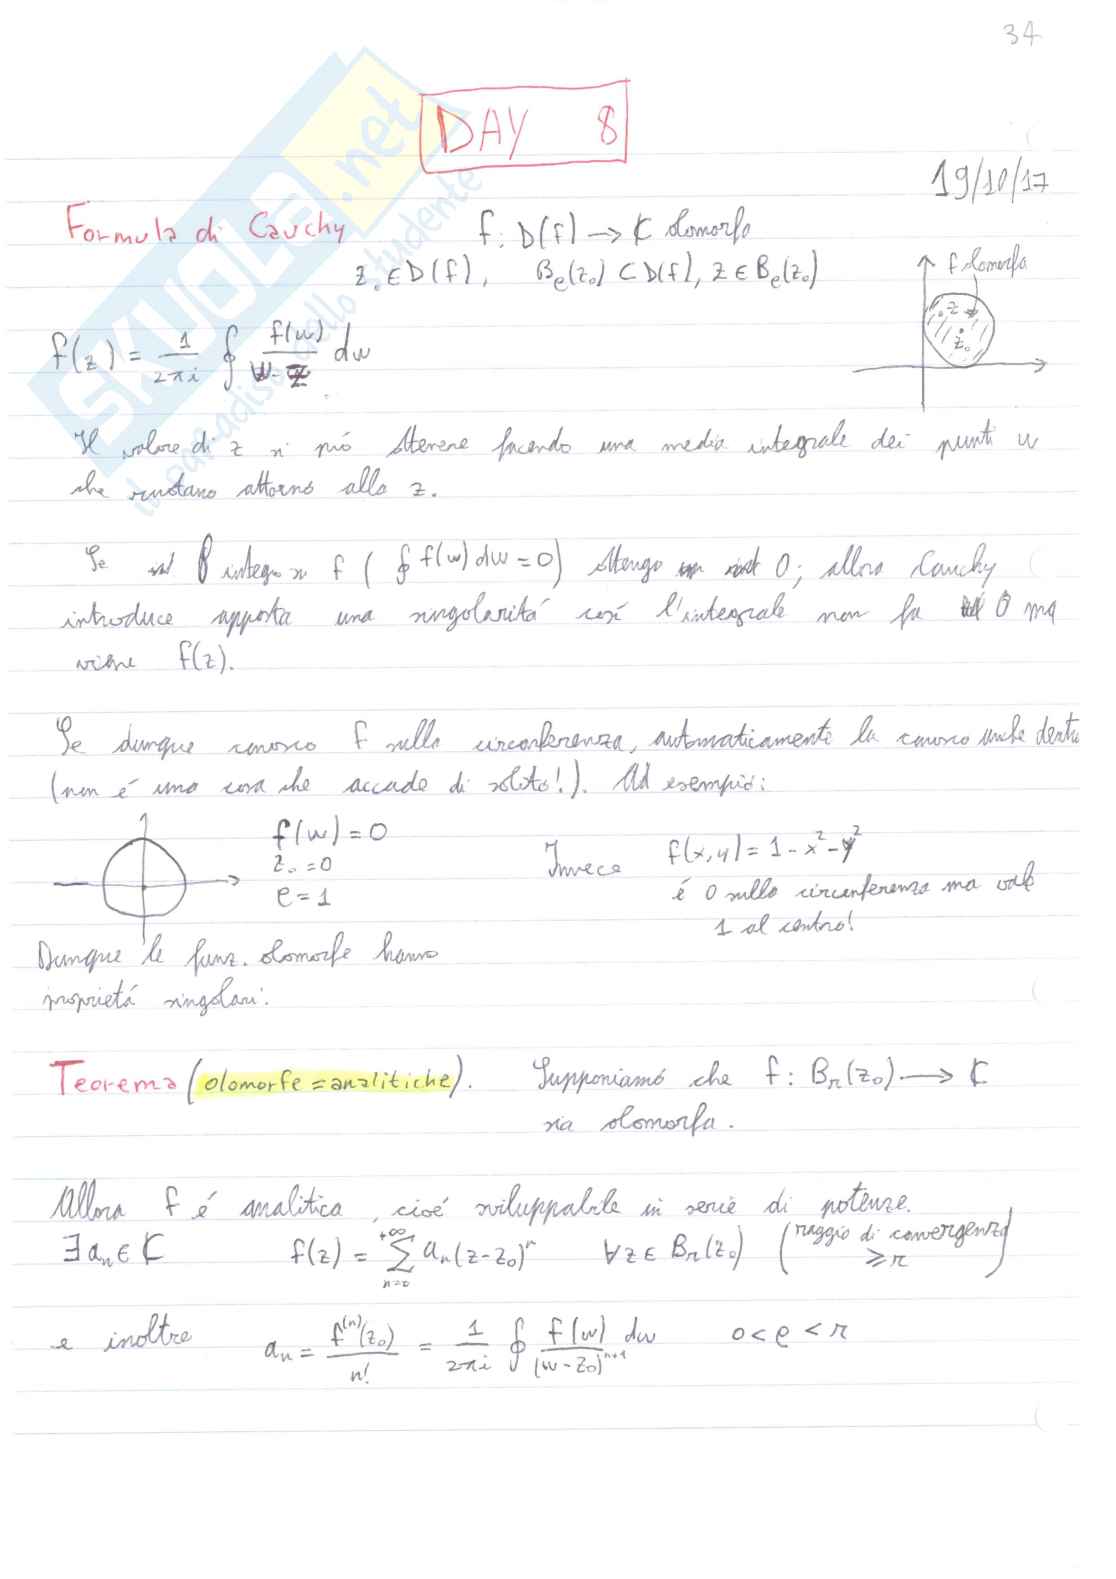 34
DAY 8
19/10/17
Formula di Cauchy f: D(f) → ℂ olomorfa
z₀ ∈ D(f), B_ρ(z₀) ⊂ D(f), z ∈ B_ρ(z₀)
f olomorfa
z
z₀
f(z) = 1/(2πi) ∮ f(w)/(w-z) dw
Il valore di z si può ottenere facendo una media integrale dei punti w
che ruotano attorno allo z.
Se integrassi f (∮ f(w) dw = 0) ottengo 0; allora Cauchy
introduce apposta una singolaritá cosí l'integrale non fa 0 ma
viene f(z).
Se dunque conosco f sulla circonferenza, automaticamente la conosco anche dentro
(non é una cosa che accade di solito!). Ad esempio:
f(w) = 0
z₀ = 0
ρ = 1
Invece f(x,y) = 1 - x² - y²
é 0 sulla circonferenza ma vale
1 al centro!
Dunque le funz. olomorfe hanno
proprietá singolari.
Teorema (olomorfe = analitiche). Supponiamo che f: B_r(z₀) → ℂ
sia olomorfa.
Allora f é analitica, cioé sviluppabile in serie di potenze.
∃ aₙ ∈ ℂ f(z) = Σ_{n=0}^{+∞} aₙ(z-z₀)ⁿ ∀z ∈ B_r(z₀) (raggio di convergenza ≥ r)
e inoltre aₙ = f⁽ⁿ⁾(z₀)/n! = 1/(2πi) ∮ f(w)/(w-z₀)ⁿ⁺¹ dw 0 < ρ < r
SKUOLA.net
il paradiso dello studente